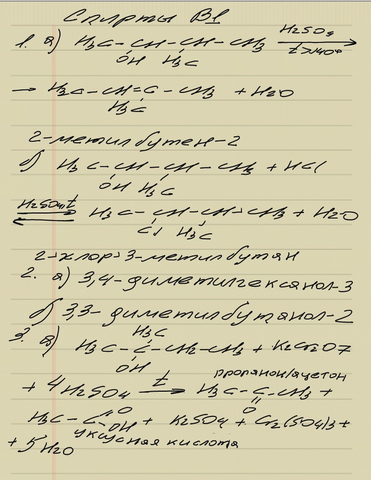 Спирты В1
1. а) H3C – CH – CH – CH3 H2SO4 t>140°
OH H3C
→ H3C – CH = C – CH3 + H2O
H3C
2-метилбутен-2
б) H3C – CH – CH – CH3 + HCl
OH H3C
H2SO4, t H3C – CH – CH – CH3 + H2O
Cl H3C
2-хлор-3-метилбутан
2. а) 3,4-диметилгексанол-3
б) 3,3-диметилбутанол-2
3. а) H3C
H3C – C – CH2 – CH3 + K2Cr2O7
OH пропанон/ацетон
+ 4H2SO4 t → H3C – C – CH3 +
O
H3C – C =O OH + K2SO4 + Cr2(SO4)3 +
уксусная кислота
+ 5H2O